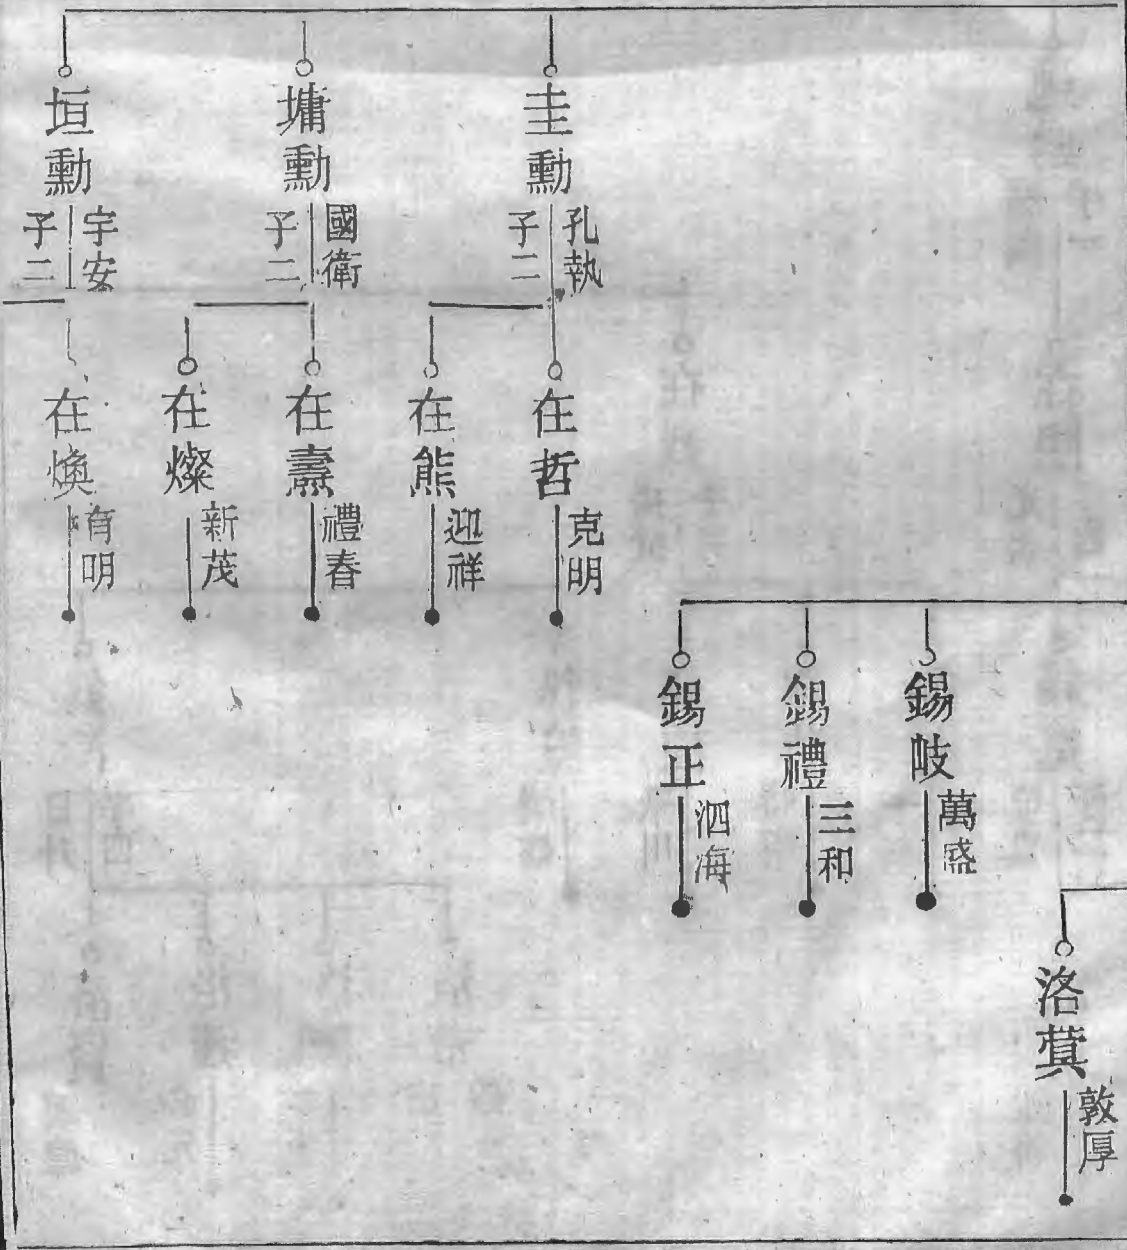 圭勳
孔執
子二
墉勳
國衛
子二
垣勳
宇安
子二
在哲
克明
在熊
迎祥
在燾
禮春
在燦
新茂
在煥
有明
錫岐
萬盛
錫禮
三和
錫正
泗海
洛蓂
敦厚